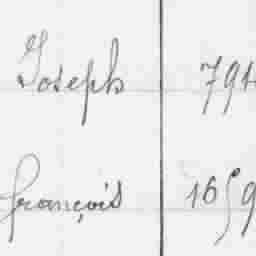 Joseph 791
françois 1659